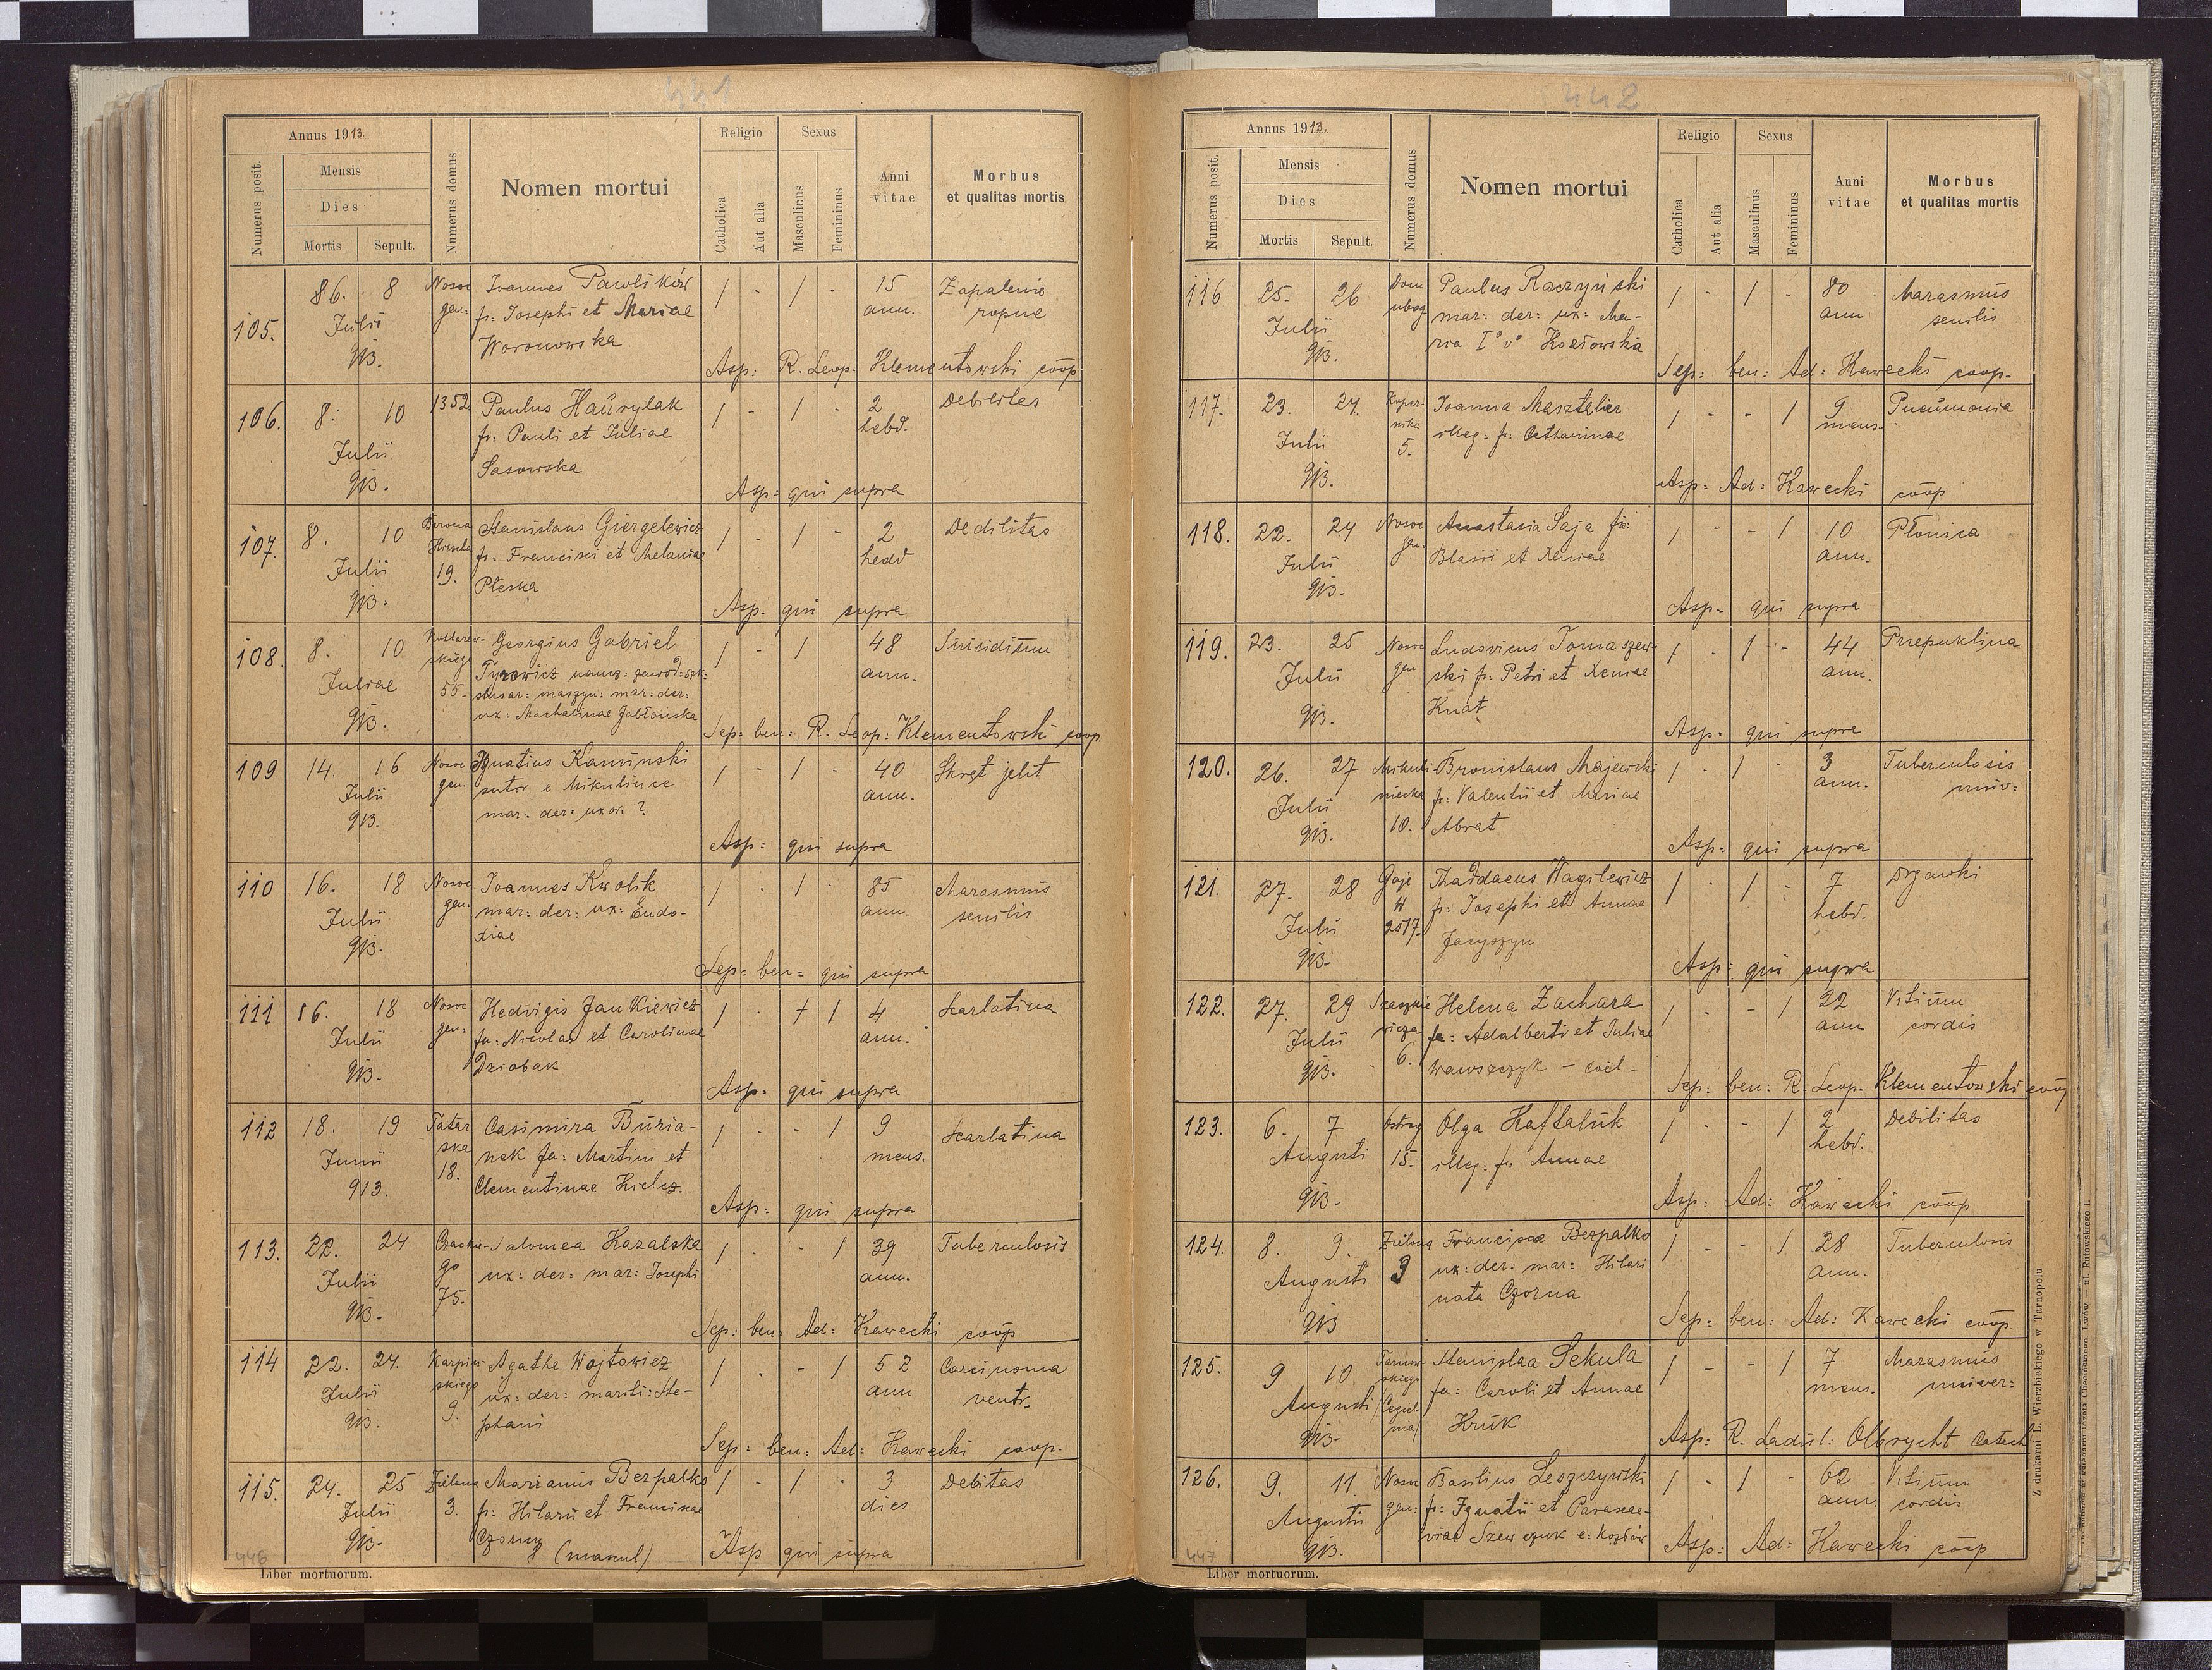 441
Annus 1913.
Numerus posit.
Mensis
Dies
Mortis
Sepult.
Numerus domus
Nomen mortui
Religio
Catholica
Aut alia
Sexus
Masculinus
Femininus
Anni
vitae
Morbus
et qualitas mortis
105.
86. 8
Julii
913.
Nosoc
gen:
Joannes Pawlików
f: Josephi et Mariae
Woronowska
1 - 1 -
15
ann.
Zapalenie
ropne
Asp: R. Leop. Klementowski coop
106.
8. 10
Julii
913.
1352
Paulus Hawrylak
f: Pauli et Juliae
Sasowska
1 - 1 -
2
hebd.
Asp: qui supra
107.
8. 10
Julii
913.
Hirscha
19.
Stanislaus Giergelewicz
f: Francisci et Melaniae
Pleska
1 - 1 -
2
hedd
Dedilitas
Asp. qui supra
108.
8. 10
Juliae
913.
55.
Georgius Gabriel
Tyrowicz naucz: zawod: szk:
slusar: maszyn: mar: der:
ux: Machalinae Jabłonska
1 - 1
48
ann.
Suicidium
Sep: ben: R. Leop: Klementowski coop.
109
14. 16
Julii
913.
Nosoc
gen.
Ignatius Kaminski
sutor e Mikulince
mar: der: uxor: ?
1 - 1 -
40
ann.
Skręt jelit
Asp: qui supra
110
16. 18
Julii
913.
Nosoc
gen.
Joannes Kwolik
mar: der: ux: Eudo-
xiae
1 - 1 -
85
ann.
Marasmus
senilis
Sep: ben: qui supra
111
16. 18
Julii
913.
Nosoc
gen.
Hedvigis Jankiewicz
fa: Nicolai et Carolinae
Dziobak
1 - + 1
4
ann.
Scarlatina
Asp: qui supra
112
18. 19
Junii
913.
Tatar
ska
18.
Casimira Buria-
nek fa: Martini et
Clementinae Kielcz.
1 - - 1
9
mens.
Scarlatina
Asp: qui supra
113.
22. 24
Julii
913.
Czackie-
go
75.
Salomea Kazalska
ux: der: mar: Josephi
1 - - 1
39
ann.
Tuberculosis
Sep: ben: Ad: Kawecki coop
114
22. 24.
Julii
913.
Karpin-
skiego
9.
Agathe Wojtowicz
ux: der: mariti: Ste-
phani
1 - 1
52
ann
Carcinoma
ventr.
Sep: ben: Ad: Kawecki coop.
115.
24. 25
Julii
913.
Zielona
3.
Marianus Bezpalko
f: Hilarii et Franciscae
Czorny (manul)
1 - 1 -
3
dies
Debitas
Asp qui supra
446
Liber mortuorum.
442
Annus 1913.
Numerus posit.
Mensis
Dies
Mortis
Sepult.
Numerus domus
Nomen mortui
Religio
Catholica
Aut alia
Sexus
Masculinus
Femininus
Anni
vitae
Morbus
et qualitas mortis
116
25. 26
Julii
913.
Dom
ubog
Paulus Raczyński
mar: der: ux: Ma-
ria I° v° Kozłowska
1 - 1 -
80
ann
Marasmus
senilis
Sep: ben: Ad: Kawecki coop.
117.
23. 24.
Julii
913.
Koper-
nika
5.
Joanna Masztaler
illeg: f: Catharinae
1 - - 1
9
mens.
Pneumonia
Asp: Ad: Kawecki coop
118.
22. 24
Julii
913.
Nosoc
gen.
Anastasia Saja fa:
Blasii et Xeniae
1 - 1
10
ann.
Płonica
Asp- qui supra
119.
23. 25
Julii
913.
Nosoc
gen
Ludovicus Tomaszew-
ski f: Petri et Xeniae
Knat
1 - 1 -
44
ann.
Przepuklina
Asp. qui supra
120.
26. 27
Julii
913.
Mikuli
niecka
10.
Bronislaus Majewski
f: Valentii et Mariae
Abrat
1 - 1 -
3
ann.
Tuberculosis
univ:
Asp: qui supra
121.
27. 28
Julii
913.
Gaje
W
2517.
Thaddaeus Hagilewicz
f: Josephi et Annae
Jaryszyn
1 - 1 -
7
hebd.
Drgawki
Asp: qui supra
122.
27. 29
Julii
913.
Szaszkie
wicza
6.
Helena Zachara
fa: Adalberti et Juliae
Wawszczyk - coël-
1 - - 1
22
ann
Vitium
cordis
Sep: ben: R. Leop. Klementowski coop
123.
6. 7
Augusti
913.
Ostrog
15.
Olga Haftaluk
illeg: f: Annae
1 - - 1
2
hebd.
Debilitas
Asp: Ad: Kawecki coop
124.
8. 9.
Augusti
913
Zielona
3
Francisca Bezpalko
ux: der: mar: Hilari
nata Czorna
1 - - 1
28
ann.
Tuberculosis
Sep: ben: Ad: Kawecki coop.
125.
9 10
Augusti
913.
Tarnow-
skiego
(Cegiel
nia)
Stanislaa Sekula
fa: Caroli et Annae
Kruk
1 - - 1
7
mens.
Marasmus
univer:
Asp: R. Ladisl: Olbrycht Catech
126.
9. 11.
Augusti
913.
Nosoc
gen:
Basilius Leszczynski
f: Ignatii et Parasce-
viae Szewczuk e: Kozłów
1 - 1 -
62
ann.
Vitium
cordis
Asp: Ad: Kawecki coop
447
Liber mortuorum.
Z drukarni L. Wierzbickiego w Tarnopolu